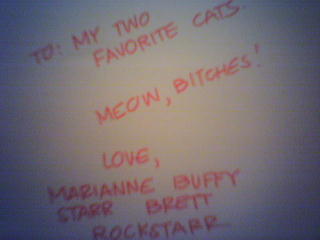 TO: MY TWO
FAVORITE CATS.
MEOW, BITCHES!
LOVE,
MARIANNE BUFFY
STARR BRETT
ROCKSTARR